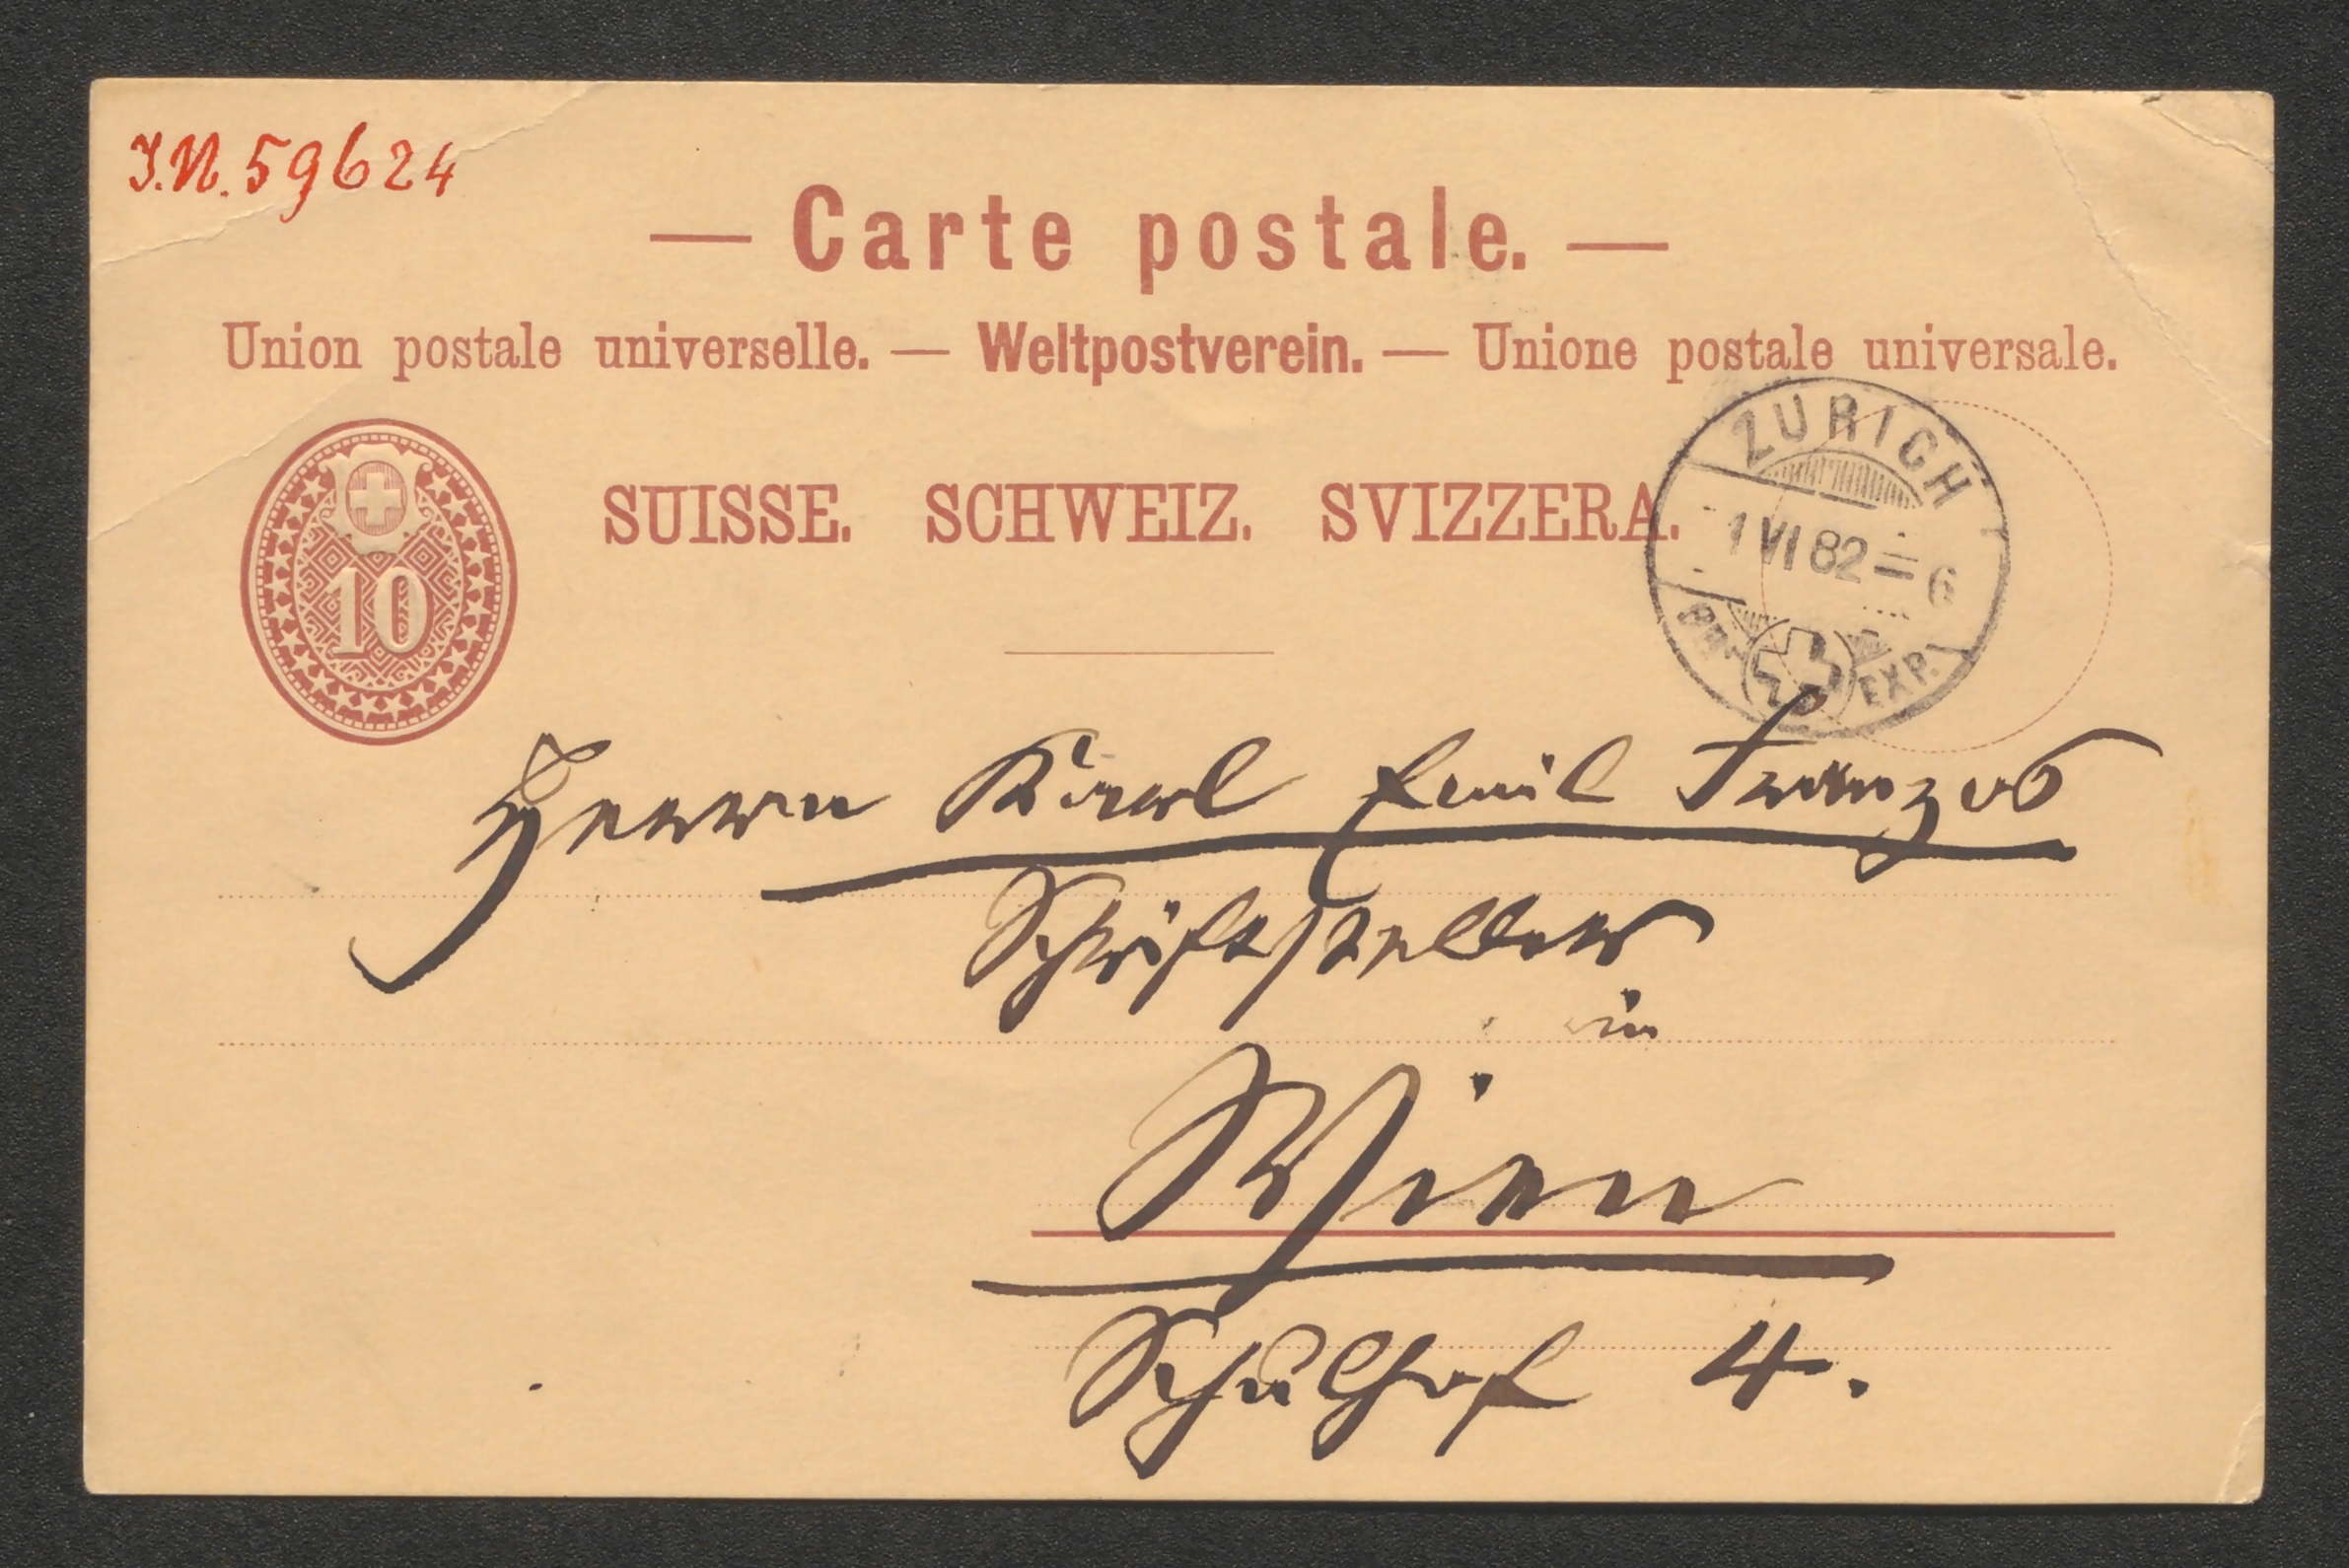 J.N. 59624
— Carte postale. —
Union postale universelle. — Weltpostverein. — Unione postale universale.
SUISSE. SCHWEIZ. SVIZZERA.
10
ZÜRICH
1 VI 82 – 6
BR. EXP.
Herrn Karl Emil Franzos
Schriftsteller
in
Wien
Schulhof 4.